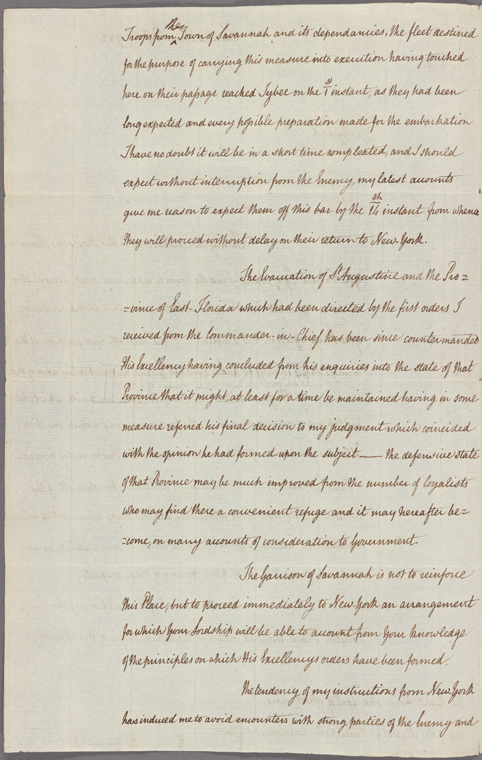 Troops from the Town of Savannah and its dependancies, the fleet destined
for the purpose of carrying this measure into execution having touched
here on their passage reached Tybee on the 1st instant, as they had been
long expected and every possible preparation made for the embarkation
I have no doubt it will be in a short time compleated, and I should
expect without interruption from the Enemy, my latest accounts
give me reason to expect them off this bar by the 14th instant from whence
they will proceed without delay on their return to New York.
The Evacuation of St Augustine and the Pro=
=vince of East-Florida which had been directed by the first orders I
received from the Commander-in-Chief has been since countermanded
His Excellency having concluded from his enquiries into the state of that
Province that it might, at least for a time be maintained having in some
measure referred his final decision to my judgment which coincided
with the opinion he had formed upon the subject — the defensive state
of that Province may be much improved from the number of loyalists
who may find there a convenient refuge and it may hereafter be=
=come, on many accounts of consideration to Government.
The Garrison of Savannah is not to reinforce
this Place, but to proceed immediately to New York an arrangement
for which Your Lordship will be able to account from Your knowledge
of the principles on which His Excellencys orders have been formed.
The tendency of my instructions from New York
has induced me to avoid encounters with strong parties of the Enemy and